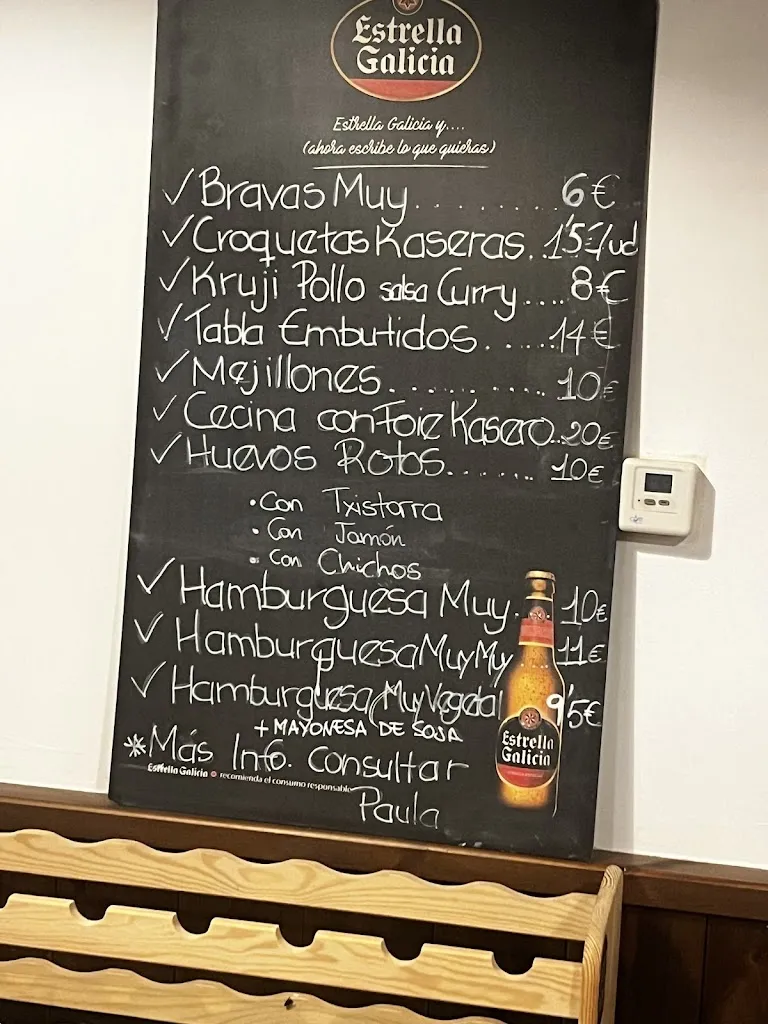 Estrella
Galicia
Estrella Galicia y....
(ahora escribe lo que quieras)
✓ Bravas Muy.......... 6€
✓ Croquetas Kaseras.. 1'5€/ud
✓ Kruji Pollo salsa Curry.... 8€
✓ Tabla Embutidos...... 14€
✓ Mejillones.......... 10€
✓ Cecina con Foie Kasero.. 20€
✓ Huevos Rotos....... 10€
• Con Txistorra
• Con Jamón
• Con Chichos
✓ Hamburguesa Muy.. 10€
✓ Hamburguesa MuyMuy 11€
✓ Hamburguesa (MuyVegdal 9'5€
+ MAYONESA DE SOJA
* Más Info. Consultar
Paula
Estrella Galicia recomienda el consumo responsable
Estrella
Galicia